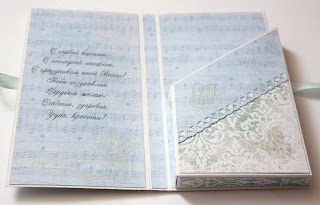 С первой капелью,
С последней метелью,
С праздником юной Весны!
Тебя поздравляю
Сердечно желаю,
Счастья, здоровья,
Удачи, красоты!